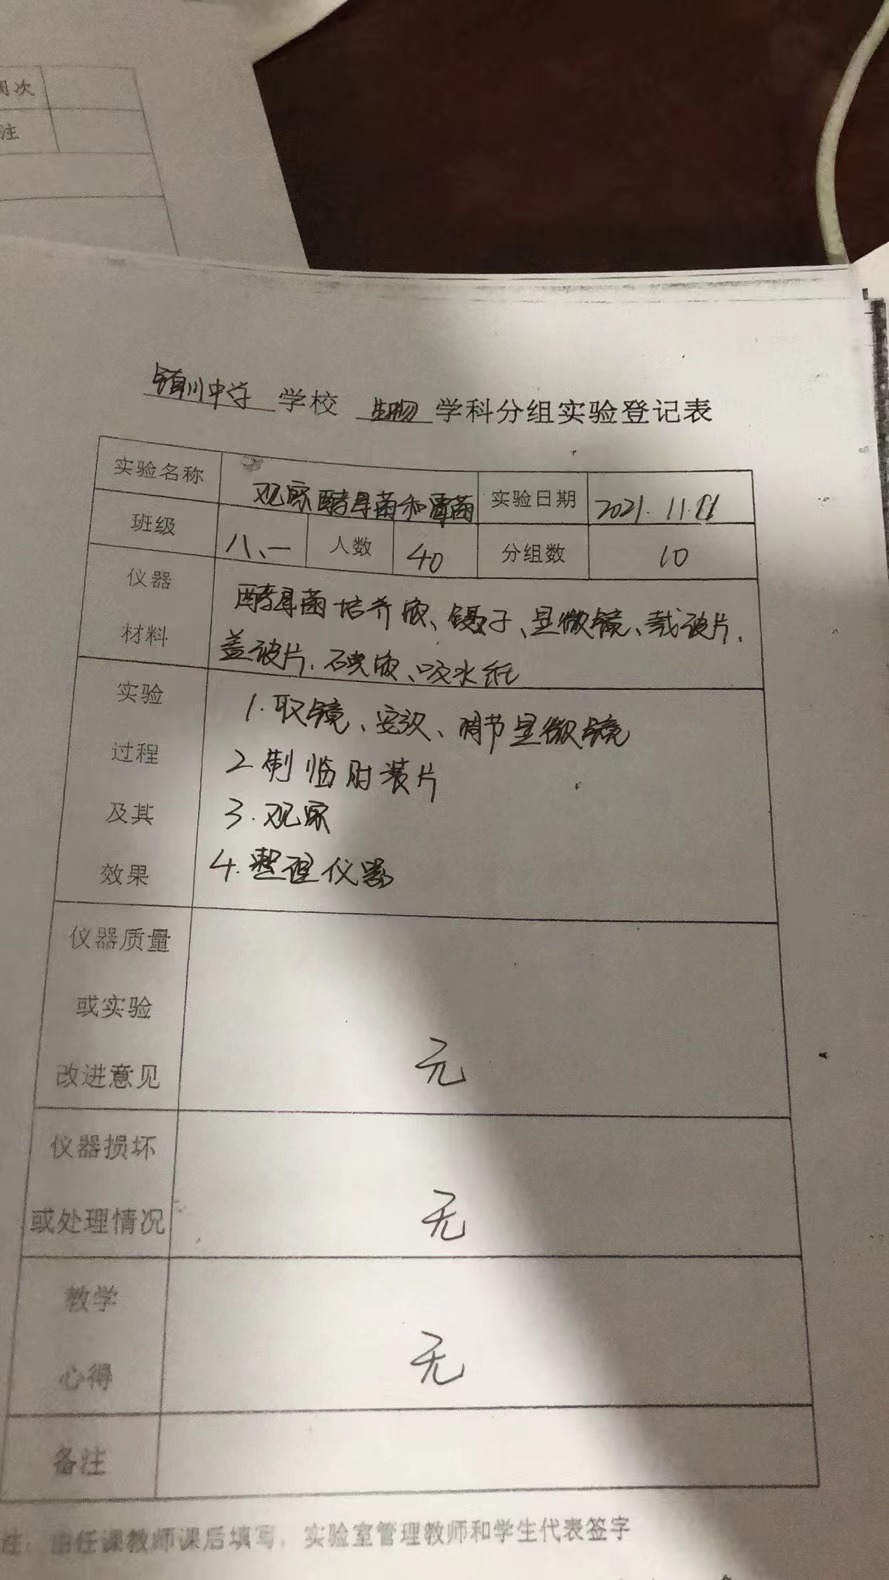 周次
注
中学 学校 生物 学科分组实验登记表
实验名称 观察酵母菌和霉菌 实验日期 2021.11.
班级 八、一 人数 40 分组数 10
仪器 酵母菌培养液、镊子、显微镜、载玻片、
材料 盖玻片、碘液、吸水纸
实验 1.取镜、安放、调节显微镜
过程 2.制临时装片
及其 3.观察
效果 4.整理仪器
仪器质量
或实验
改进意见 无
仪器损坏
或处理情况 无
教学
心得 无
备注
注：由任课教师课后填写，实验室管理教师和学生代表签字